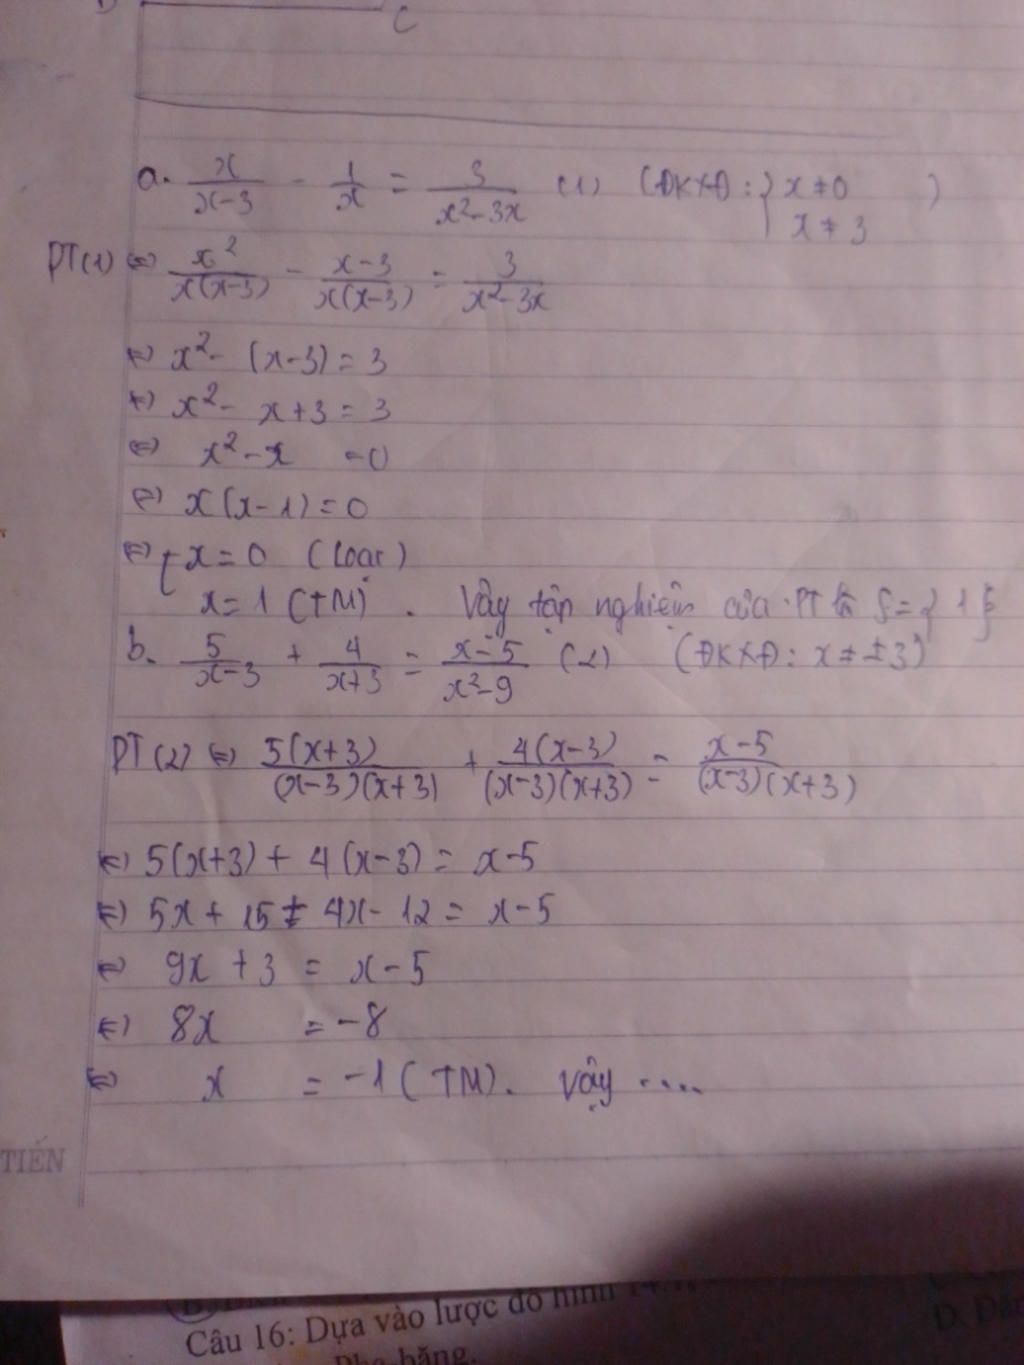 C
a. x/(x-3) - 1/x = 3/(x²-3x) (1) (ĐKXĐ: { x ≠ 0
x ≠ 3 )
PT(1) <=> x²/(x(x-3)) - (x-3)/(x(x-3)) = 3/(x²-3x)
<=> x² - (x-3) = 3
<=> x² - x + 3 = 3
<=> x² - x = 0
<=> x(x-1) = 0
<=> [ x = 0 (loại)
x = 1 (TM). Vậy tập nghiệm của PT là S = {1}
b. 5/(x-3) + 4/(x+3) = (x-5)/(x²-9) (2) (ĐKXĐ: x ≠ ±3)
PT(2) <=> 5(x+3)/((x-3)(x+3)) + 4(x-3)/((x-3)(x+3)) = (x-5)/((x-3)(x+3))
<=> 5(x+3) + 4(x-3) = x-5
<=> 5x + 15 + 4x - 12 = x-5
<=> 9x + 3 = x - 5
<=> 8x = -8
<=> x = -1 (TM). Vậy ....
TIẾN
Câu 16: Dựa vào lược đồ hình
băng.